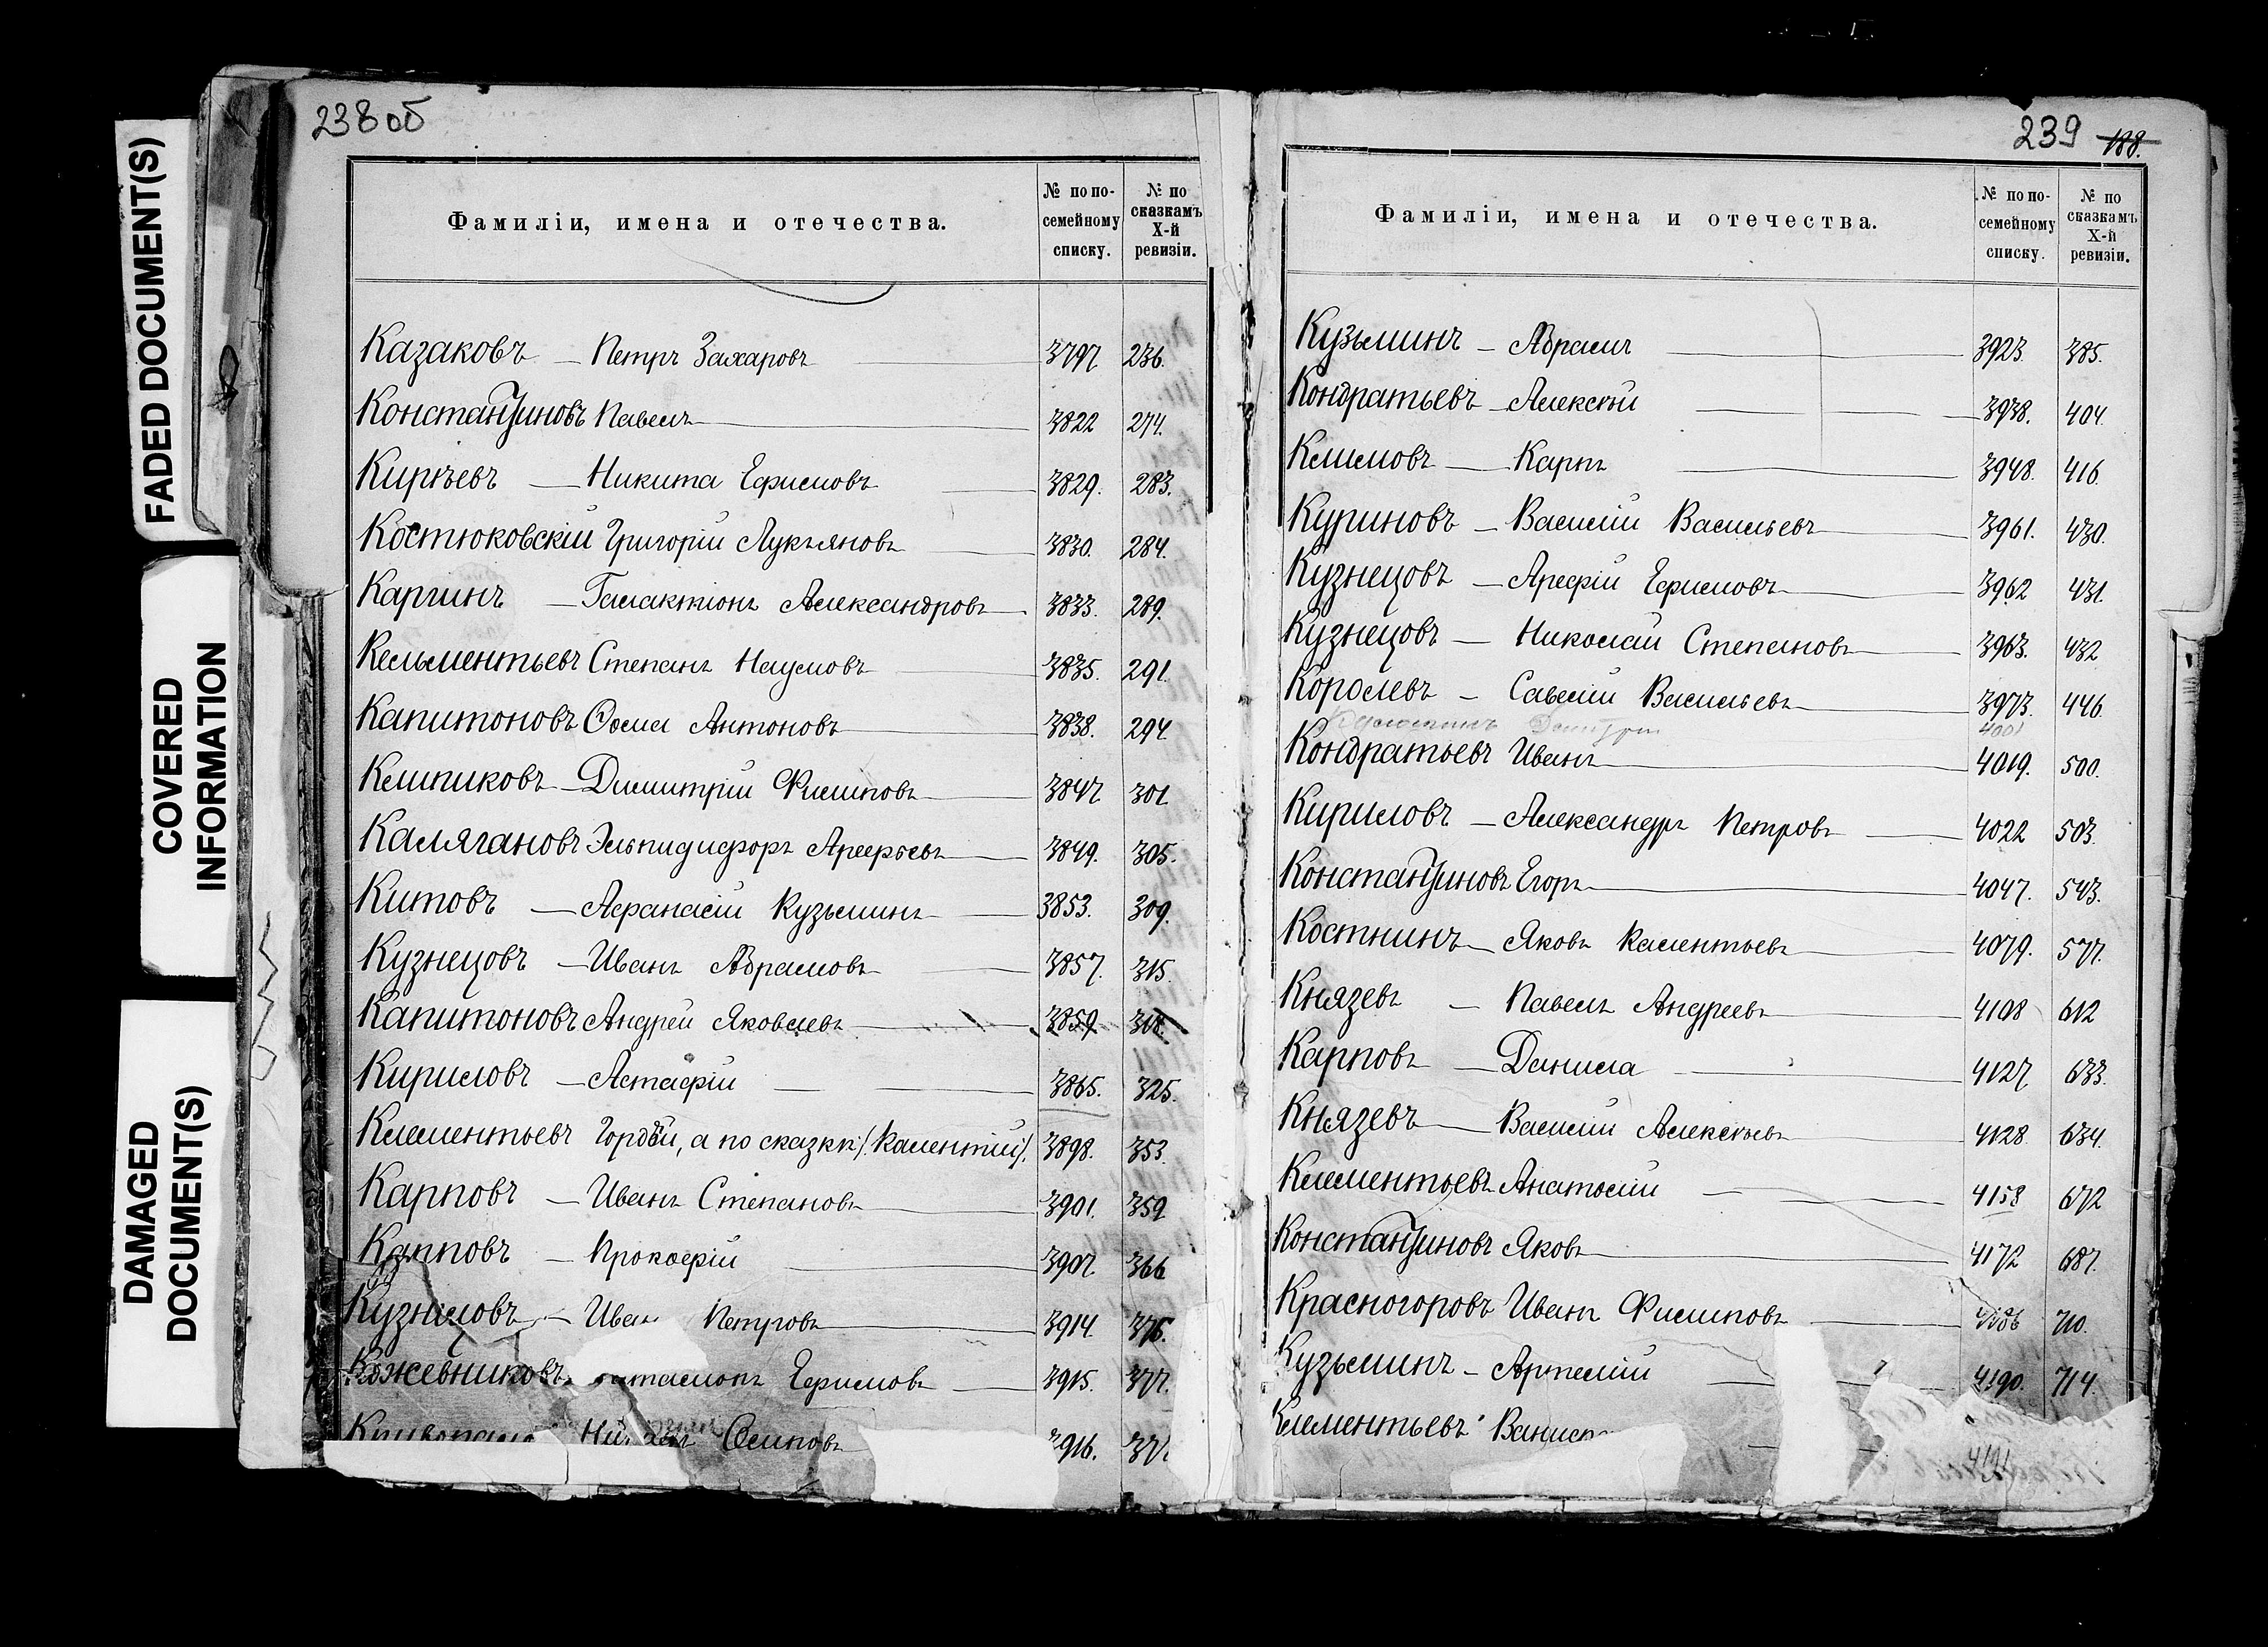 FADED DOCUMENT(S)
COVERED
INFORMATION
DAMAGED
DOCUMENT(S)
238 об
Фамиліи, имена и отечества. № по по-семейному списку. № по сказкамъ X-й ревизіи.
Казаковъ — Петръ Захаровъ 3797 236.
Константиновъ Павелъ 3822 274.
Кирѣевъ — Никита Ефимовъ 3829. 283.
Костюковскій Григорій Лукьяновъ 3830. 284.
Каргинъ — Галактіонъ Александровъ 3833. 289.
Кельментьевъ Степанъ Наумовъ 3835. 291.
Капитоновъ Фома Антоновъ 3838. 294.
Клипиковъ — Димитрій Филиповъ 3847. 301
Каляганово Эльпидифоръ Арефьевъ 3849. 305.
Китовъ — Афанасій Кузьминъ 3853. 309.
Кузнецовъ — Иванъ Абрамовъ 3857. 315.
Капитоновъ Андрей Яковлевъ 3859. 318.
Кириловъ — Астафій 3865. 325.
Клементьевъ Гордѣй, а по сказкѣ /: Калентій:/. 3898. 353.
Карповъ — Иванъ Степановъ 3901. 359
Карповъ — Прокофій 3907. 366
Иван Петровъ 3914. 376.
Кожевниковъ Ефимовъ 3915. 377.
Осиповъ 3916.
239 188.
Фамиліи, имена и отечества. № по по-семейному списку. № по сказкамъ X-й ревизіи.
Кузьминъ — Абрамъ 3923. 385.
Кондратьевъ — Алексѣй 3938. 404.
Климовъ — Карпъ 3948. 416.
Куриновъ — Василій Васильевъ 3961. 430.
Кузнецовъ — Арефій Ефимовъ 3962 431.
Кузнецовъ — Николай Степановъ 3963. 432
Королевъ — Савелій Васильевъ 3973. 446.
4001
Кондратьевъ Иванъ 4019. 500.
Кириловъ — Александръ Петровъ 4022 503.
Константиновъ Егоръ 4047. 543.
Костнинъ — Яковъ Калентьевъ 4079. 577.
Князевъ — Павелъ Андреевъ 4108 612
Карповъ — Данила 4127 633.
Князевъ — Василій Алексѣевъ 4128. 634.
Клементьевъ Анатолій 4158 672
Константиновъ Яковъ 4172 687.
Красногоровъ Иванъ Филиповъ 4186 710.
Кузьминъ — Артемій 4190. 714.
Клементьевъ
4191